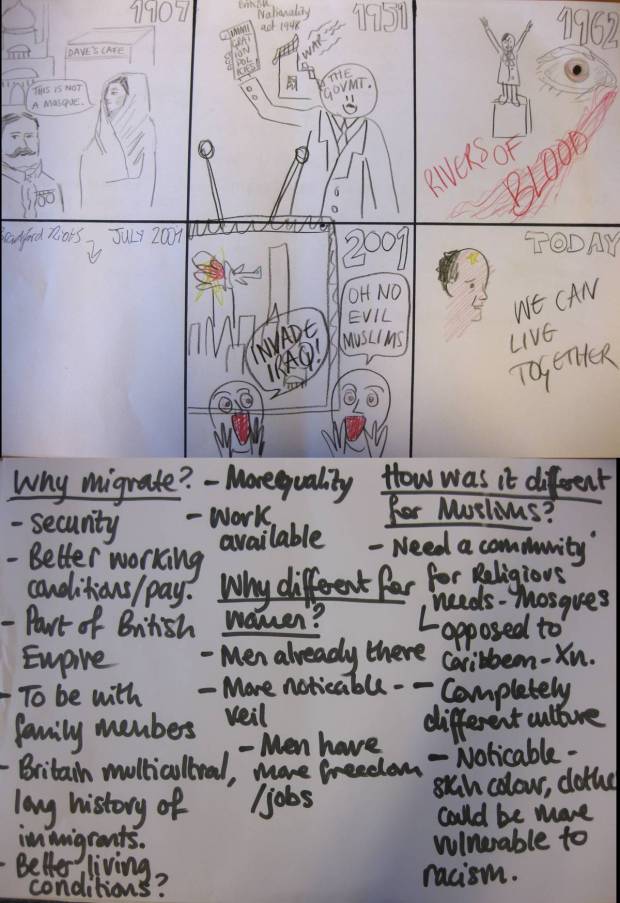 1907
DAVE'S CAFE
THIS IS NOT
A MOSQUE.
British
Nationality
act 1948
1951
IMMI
GRAT
ION
POL
THE
GOVMT.
1962
RIVERS OF
BLOOD
Bradford Riots
JULY 2001
2001
INVADE
IRAQ!
OH NO
EVIL
MUSLIMS
TODAY
WE CAN
LIVE
TOGETHER
Why migrate?
- Security
- Better working
conditions/pay.
- Part of British
Empire
- To be with
family members
- Britain multicultral,
long history of
immigrants.
- Better living
conditions?
- More equality
- Work
available
Why different for
women?
- Men already there
- More noticable -
veil
- Men have
more freedom
/jobs
How was it different
for Muslims?
- Need a community
for Religious
needs - Mosques
opposed to
Caribbean - Xn.
- Completely
different culture
- Noticable -
skin colour, clothe
could be more
vulnerable to
racism.